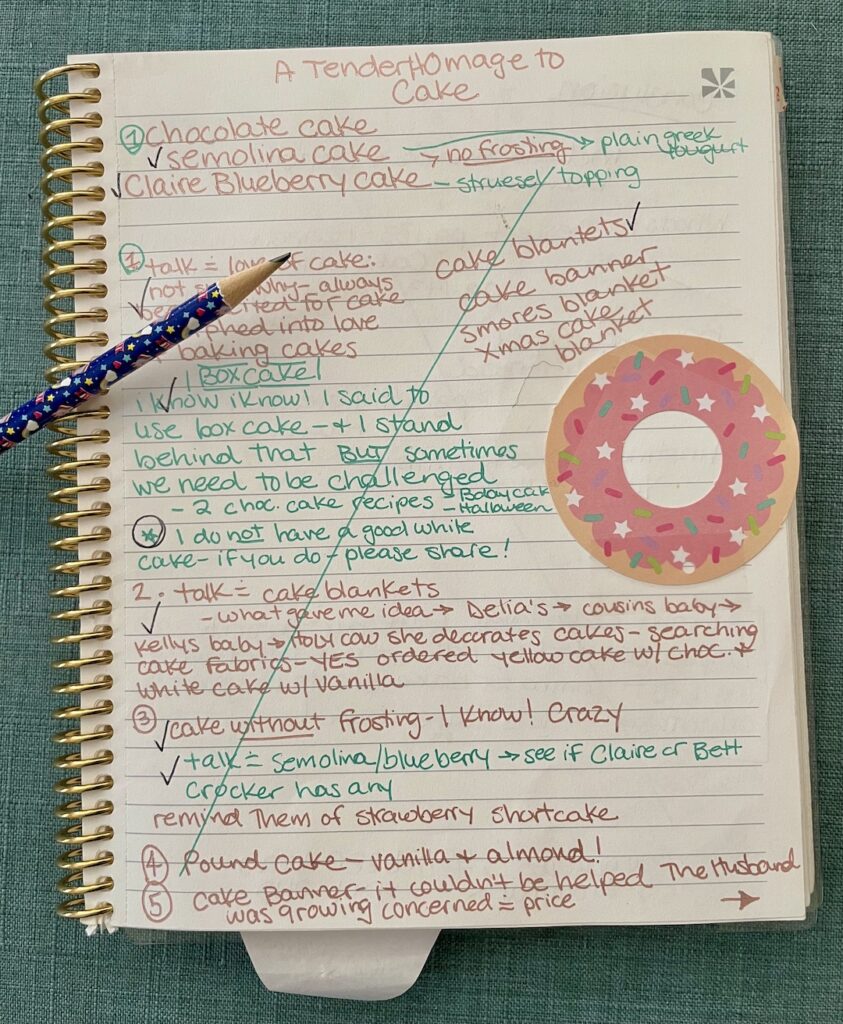 A Tender HOmage to
Cake
① chocolate cake
✓ semolina cake → no frosting → plain greek yougurt
✓ Claire Blueberry cake - struesel topping
① talk = love of cake:
✓ not why - always
for cake
into love
baking cakes
cake blankets ✓
cake banner
smores blanket
Xmas cake
blanket
Box cake
✓ i know i know! I said to
use box cake - + I stand
behind that BUT sometimes
we need to be challenged
- 2 choc. cake recipes - Bday cak
- Halloween
* I do not have a good white
cake - if you do - please share!
2. talk = cake blankets
✓ - what gave me idea → Delia's → cousins baby →
Kellys baby → HOLY cow she decorates cakes - searching
cake fabrics - YES ordered yellow cake w/ choc. +
white cake w/ vanilla
③ ✓ cake without frosting - I Know! Crazy
✓ + talk = semolina/blueberry → see if Claire or Bett
Crocker has any
remind Them of strawberry shortcake
④ Pound cake - vanilla + almond!
⑤ Cake Banner - it couldn't be helped The Husband
was growing concerned = price →